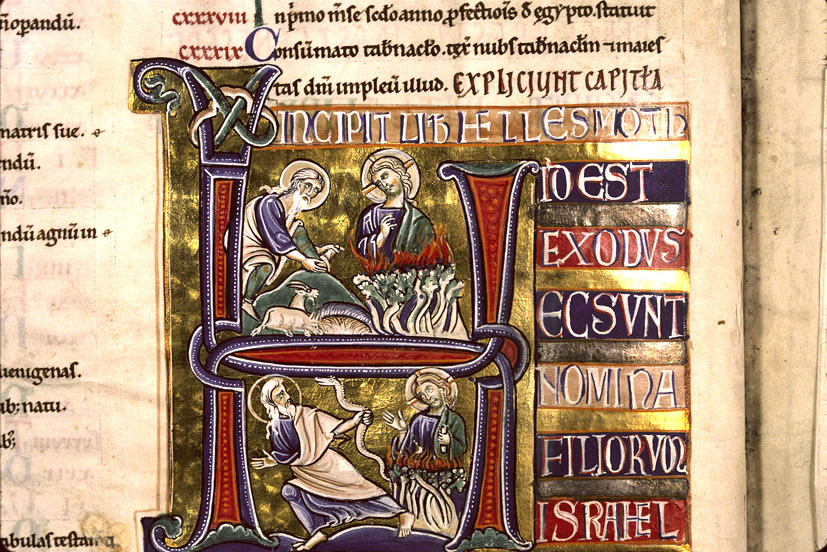 ñopandũ.
matris sue.
endũ.
ño.
endũ agnũ in
uenigenas.
ib; natu.
ib;
tabulas testam
cxxxviii In p̃mo m̃se sc̃do anno, ꝓfectiõis đ egypto. statuit
cxxxix Consũmato tab̃nac̃lo. tex̃ nubs tab̃nac̃lm ⁊ maies
tas dñi impleũ illud. EXPLICIUNT CAPITŁA
INCIPIT LIB HELLESMOTH
ID EST
EXODVS
ECSVNT
NOMINA
FILIORVM
ISRAHEL